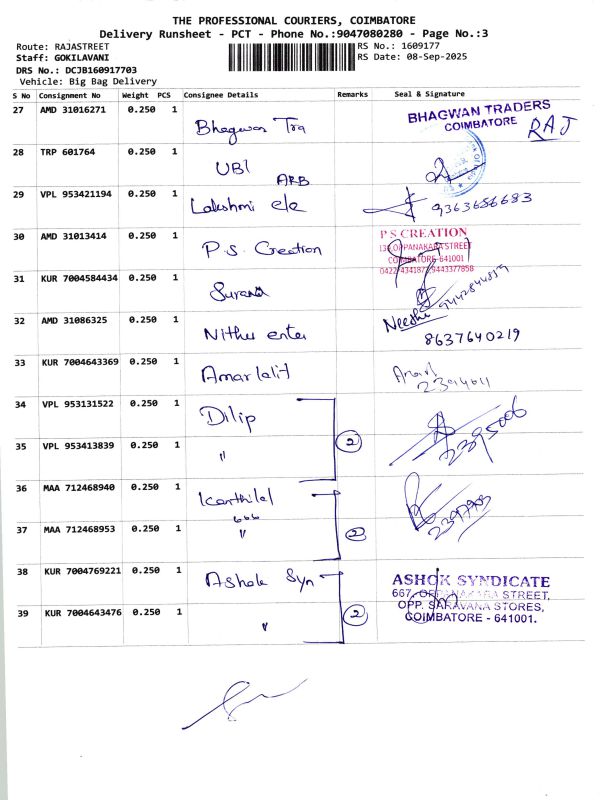 THE PROFESSIONAL COURIERS, COIMBATORE
Delivery Runsheet - PCT - Phone No.:9047080280 - Page No.:3
Route: RAJASTREET RS No.: 1609177
Staff: GOKILAVANI RS Date: 08-Sep-2025
DRS No.: DCJB160917703
Vehicle: Big Bag Delivery
S No Consignment No Weight PCS Consignee Details Remarks Seal & Signature
27 AMD 31016271 0.250 1 Bhagwan Tra BHAGWAN TRADERS
COIMBATORE RAJ
28 TRP 601764 0.250 1 UBI
ARB
29 VPL 953421194 0.250 1 Lakshmi ele 9363656683
30 AMD 31013414 0.250 1 P.S. Creation P S CREATION
OPPANAKARA STREET
COIMBATORE-641001
9443377858
31 KUR 7004584434 0.250 1 Surana
32 AMD 31086325 0.250 1 Nithu enter Needhi
8637640219
33 KUR 7004643369 0.250 1 Amarlalit
34 VPL 953131522 0.250 1 Dilip
35 VPL 953413839 0.250 1 " 2 2395006
36 MAA 712468940 0.250 1 Kanthilal
666
37 MAA 712468953 0.250 1 " 2
38 KUR 7004769221 0.250 1 Ashok Syn ASHOK SYNDICATE
667, OPPANAKARA STREET,
OPP. SARAVANA STORES,
COIMBATORE - 641001.
39 KUR 7004643476 0.250 1 " 2